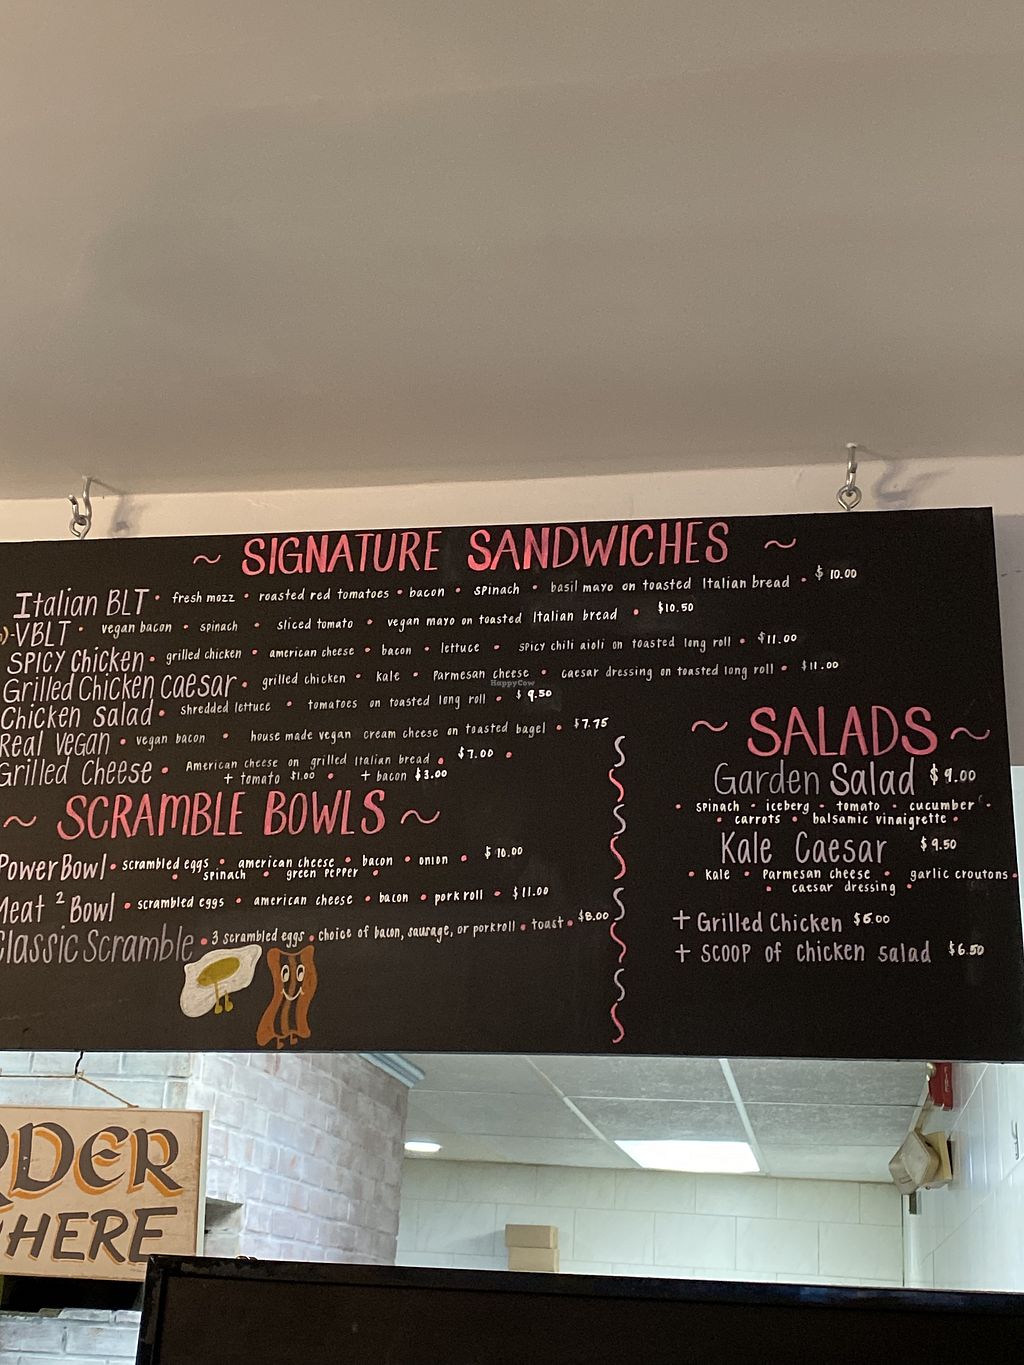 ~ SIGNATURE SANDWICHES ~
Italian BLT • fresh mozz • roasted red tomatoes • bacon • spinach • basil mayo on toasted Italian bread • $10.00
VBLT • vegan bacon • spinach • sliced tomato • vegan mayo on toasted Italian bread • $10.50
Spicy Chicken • grilled chicken • american cheese • bacon • lettuce • spicy chili aioli on toasted long roll • $11.00
Grilled Chicken caesar • grilled chicken • kale • Parmesan cheese • caesar dressing on toasted long roll • $11.00
HappyCow
Chicken Salad • shredded lettuce • tomatoes on toasted long roll • $9.50
Real Vegan • vegan bacon • house made vegan cream cheese on toasted bagel • $7.75
Grilled Cheese • American cheese on grilled Italian bread • $7.00 •
+ tomato $1.00 • + bacon $3.00
~ SCRAMBLE BOWLS ~
Power Bowl • scrambled eggs • american cheese • bacon • onion • $10.00
• spinach • green pepper •
Meat ² Bowl • scrambled eggs • american cheese • bacon • pork roll • $11.00
Classic Scramble • 3 scrambled eggs • choice of bacon, sausage, or porkroll • toast • $8.00
~ SALADS ~
Garden Salad $9.00
• spinach • iceberg • tomato • cucumber •
• carrots • balsamic vinaigrette •
Kale Caesar $9.50
• kale • Parmesan cheese • garlic croutons •
• caesar dressing •
+ Grilled Chicken $6.00
+ scoop of chicken salad $6.50
RDER
HERE